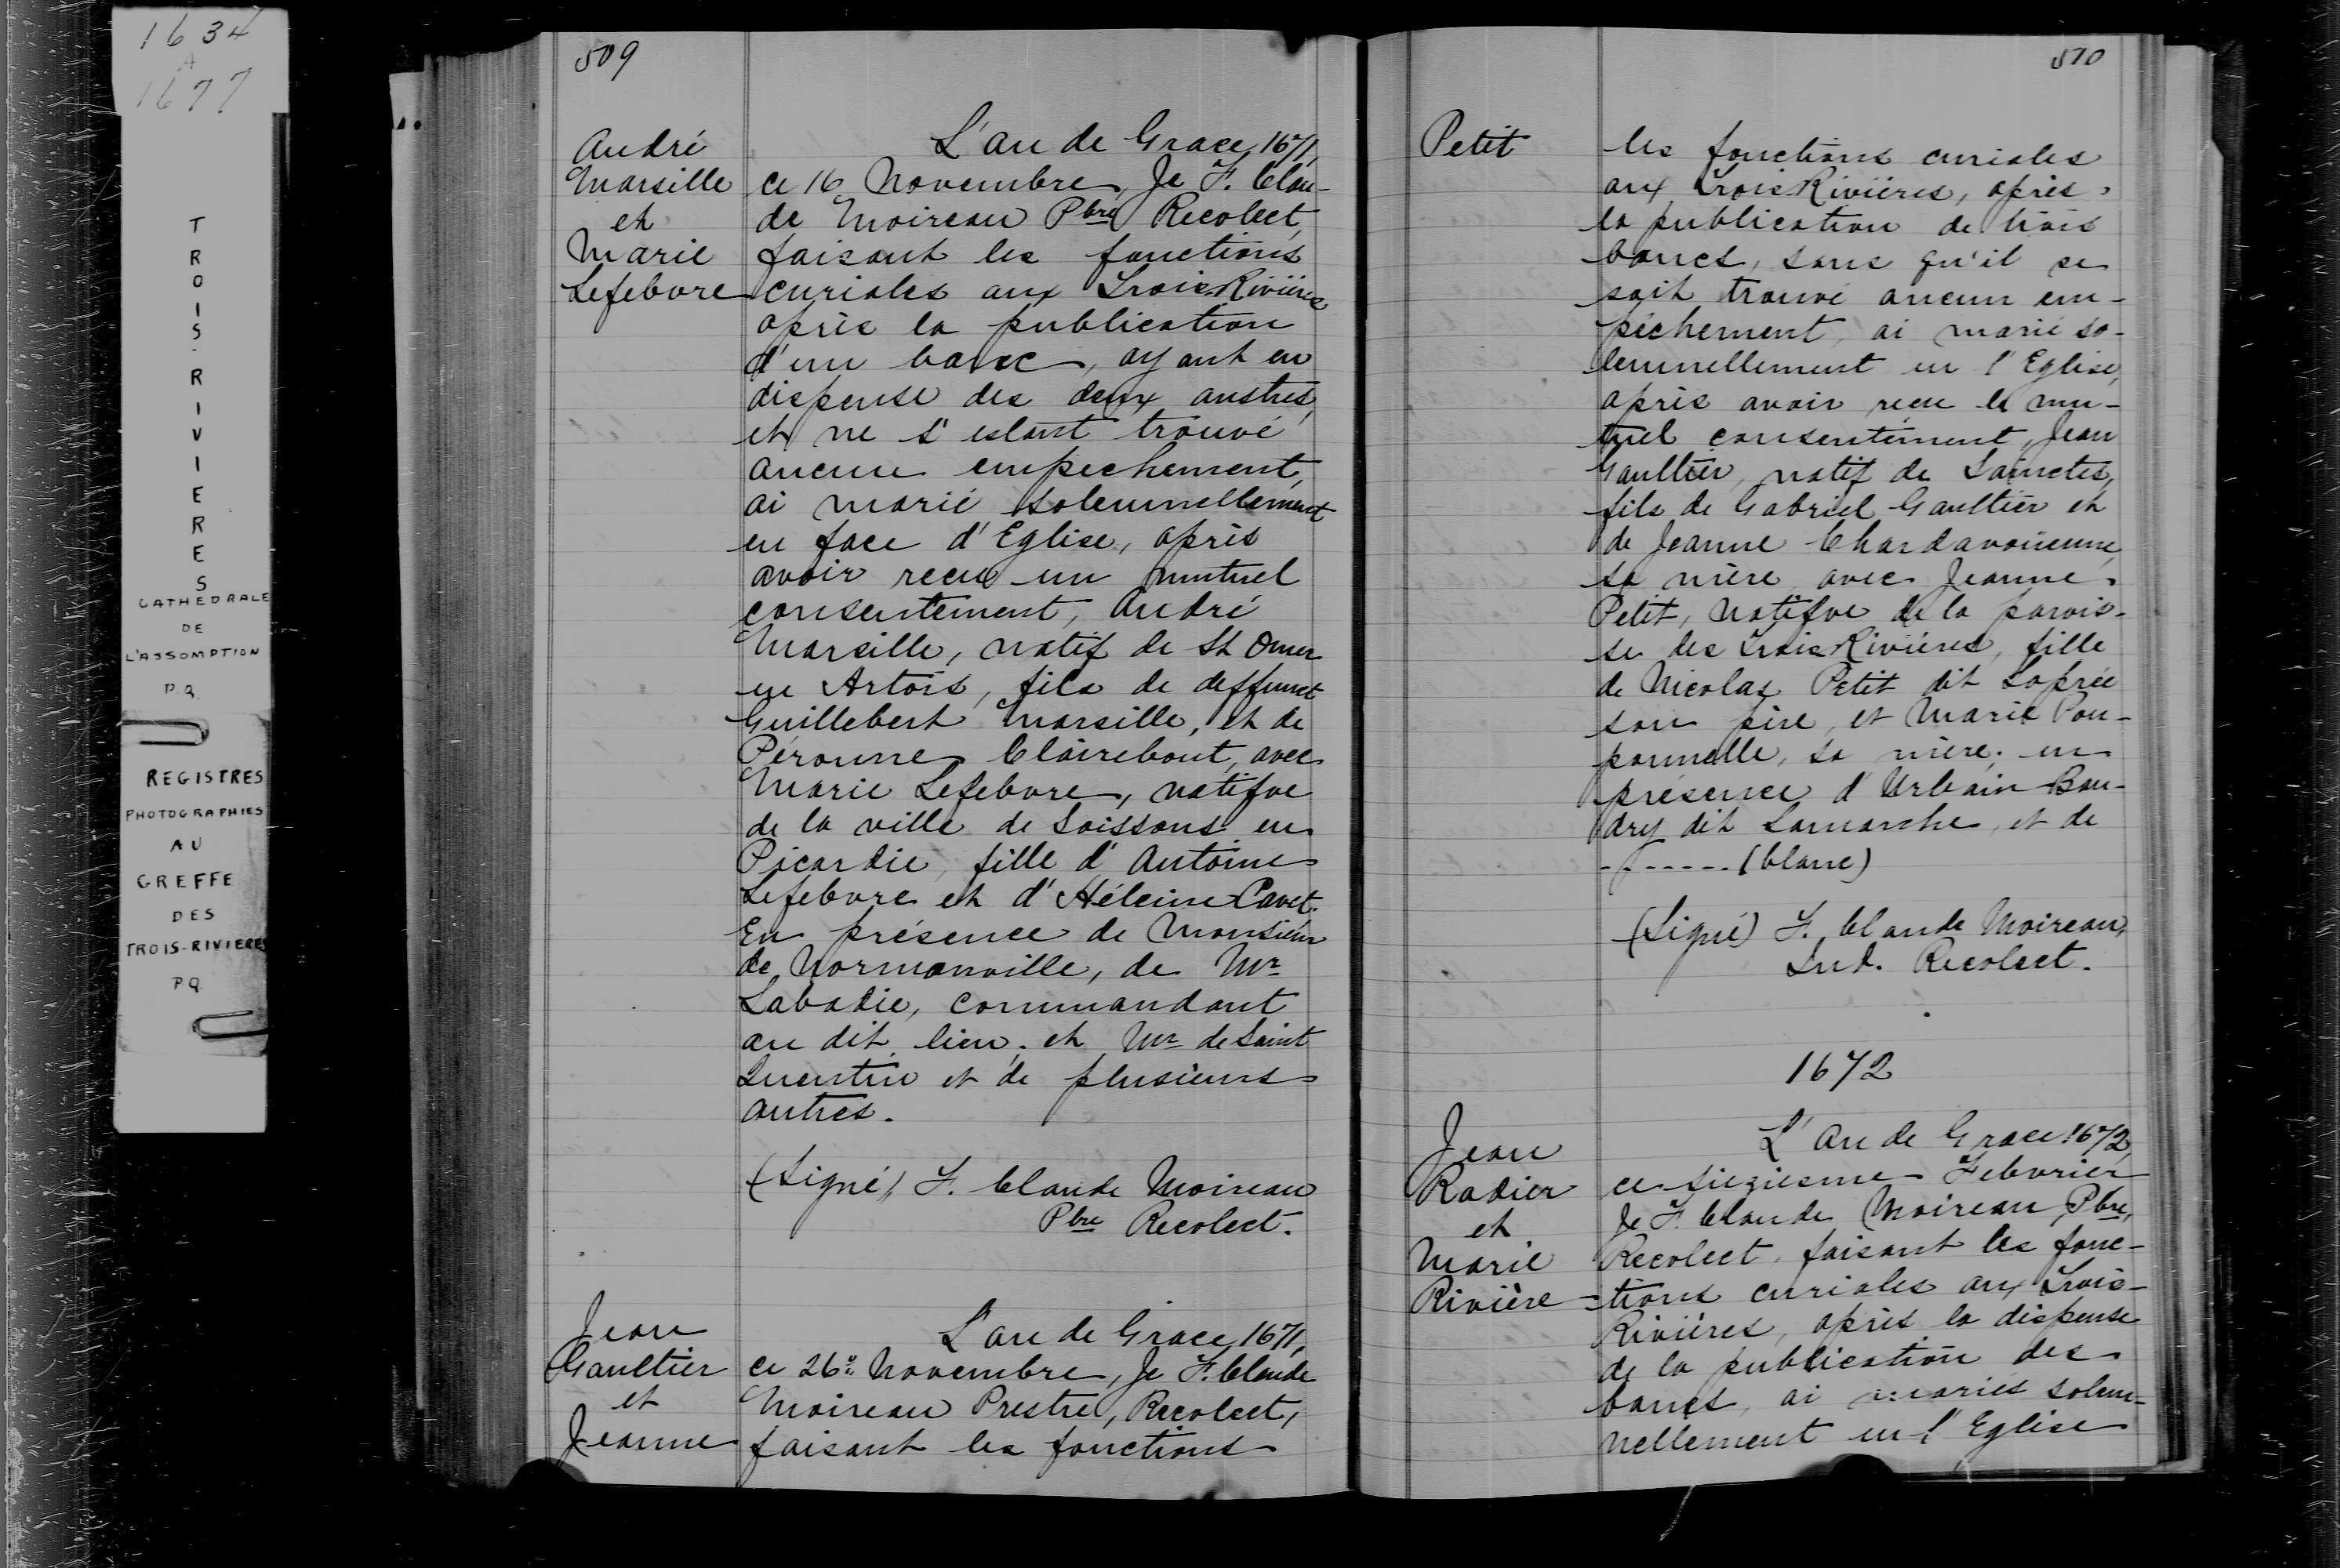 1634
A
1677
TROIS-RIVIERES
CATHEDRALE
DE
L'ASSOMPTION
P.Q.
REGISTRES
PHOTOGRAPHIES
AU
GREFFE
DES
TROIS-RIVIERES
PQ
509
André
Marsille
et
Marie
Lefebvre
L'an de Grace 1671,
ce 16 Novembre, Je F. Clau-
de Moireau Pbre Recolect,
faisant les fonctions
curiales aux Trois-Rivières
après la publication
d'un banc, ayant eu
dispense des deux austres,
et ne s'estant trouvé
aucun empechement,
ai marié solemnellement
en face d'Eglise, après
avoir receu un mutuel
consentement, André
Marsille, natif de St Omer
en Artois, fils de deffunct
Guillebert Marsille, et de
Péronne Clairebout, avec
Marie Lefebvre, natifve
de la ville de Soissons en
Picardie, fille d'Antoine
Lefebvre et d'Héleine Cavet.
En présence de Monsieur
de Normanville, de Mr
Labadie, commandant
au dit lieu, et Mr de Saint
Quentin et de plusieurs
autres.
(Signé) F. Claude Moireau
Pbre Recolect.
Jean
Gaultier
et
Jeanne
L'an de Grace 1671,
ce 26e Novembre, Je F. Claude
Moireau Prestre, Recolect,
faisant les fonctions
510
Petit
les fonctions curiales
aux Trois Rivières, après
la publication de trois
bancs, sans qu'il se
soit trouvé aucun em-
pêchement, ai marié so-
lemnellement en l'Eglise,
après avoir receu le mu-
tuel consentement, Jean
Gaultier, natif de Sainctes,
fils de Gabriel Gaultier et
de Jeanne Chardavoüenne,
sa mère avec Jeanne
Petit, natifve de la parois-
se des Trois Rivières, fille
de Nicolas Petit dit Laprée
son père, et Marie Pou-
ponnelle, sa mère; en
présence d'Urbain Bau-
dry dit Lamarche, et de
------- (blanc)
(Signé) F. Claude Moireau,
Ind. Recolect.
1672
Jean
Radier
et
Marie
Rivière
L'an de Grace 1672,
ce siziesme Febvrier
Je F. Claude Moireau, Pbre,
Recolect, faisant les fonc-
tions curiales aux Trois-
Rivières, après la dispense
de la publication des
bancs, ai mariés solem-
nellement en l'Eglise